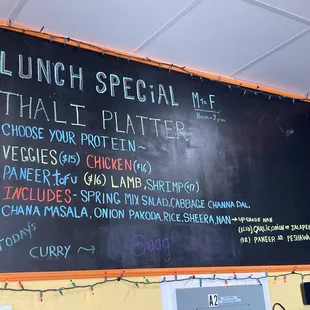 LUNCH SPECIAL M To F
THALI PLATTER
CHOOSE YOUR PROTEIN~
VEGGIES ($15) CHICKEN ($16)
PANEER, TOFU ($16) LAMB, SHRIMP ($17)
INCLUDES - SPRING MIX SALAD, CABBAGE CHANNA DAL,
CHANA MASALA, ONION PAKODA, RICE, SHEERA, NAN → UPGRADE NAN
GARLIC, ONION OR JALAPE
($2) PANEER OR PESHAWA
TODAYS
CURRY ~ Saag
A2